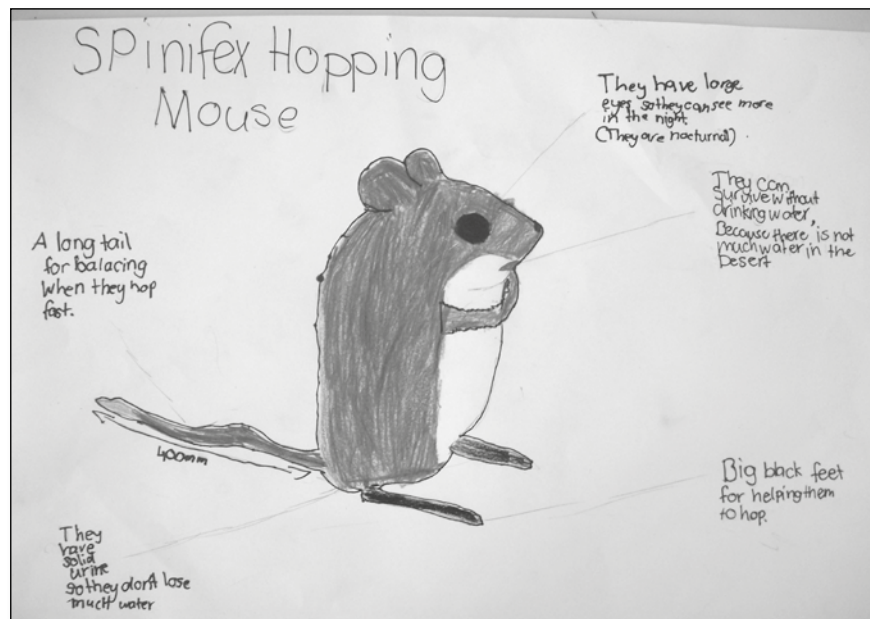 SPinifex Hopping
Mouse
They have large
eyes so they can see more
in the night.
(They are nocturnal).
They can
survive without
drinking water,
Because there is not
much water in the
Desert
A long tail
for balacing
when they hop
fast.
400mm
Big black feet
for helping them
to hop.
They
have
solid
urine
so they don't lose
much water